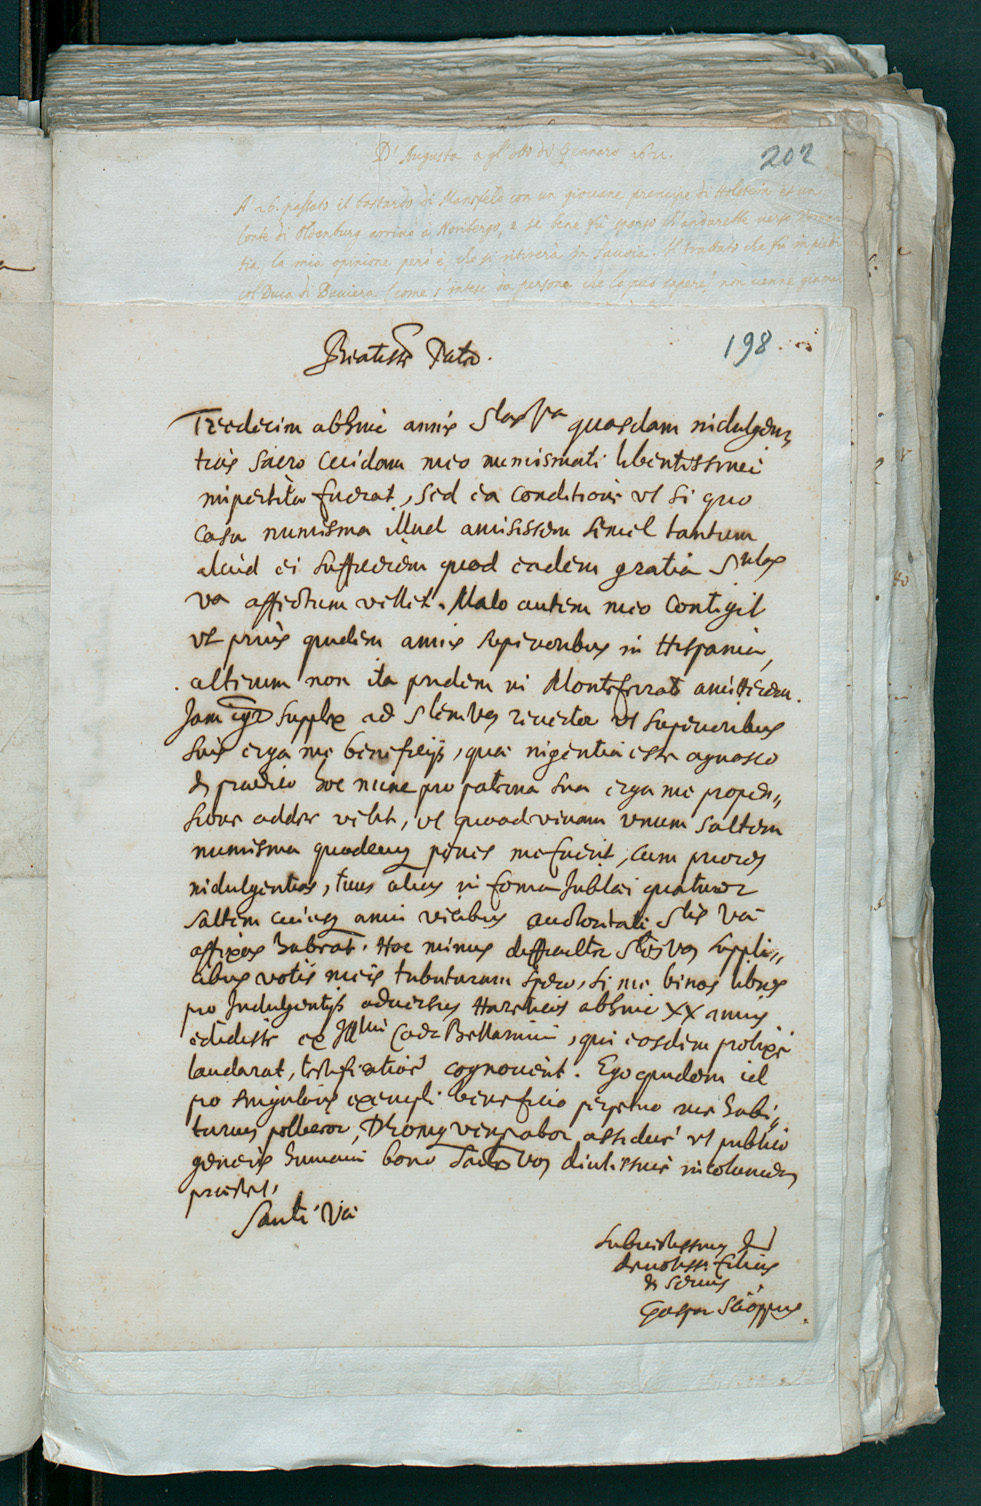 D'Augusta a gl' di Gennaro
202
A passato il bastardo di Mansfeld con un giovane principe di Holstein et un
Conte di Oldenburg arrivò a Noribergo, e se bene fù sparso d'andarette verso
tia, la mia opinione però è, che si ritirerà in Savoia. Il trattato che fù in piedi
col Duca di Baviera (come s'intese da persona che lo può sapere) non venne
198
Beatiss.e Pater.
Tredecim abhinc annis S.tas V.a quasdam indulgen„
tias sacro cuidam meo numismati libentissime
impertita fuerat, sed ea conditione vt si quo
casu numisma illud amisissem semel tantum
aliud ei sufficerem quod eadem gratia S.tas
V.a affectum vellet. Malo autem meo contigit
vt prius quidem annis superioribus in Hispania,
alterum non ita pridem in Monteferrato amitterem.
Jam igr supplex ad S.tem V. revertor vt superioribus
suis erga me beneficijs, quae ingentia esse agnosco
& praedico hoc nunc pro paterna sua erga me propen„
sione addere velit, vt quoad vivam vnum saltem
numisma penes me fuerit, cum priores
indulgentias, tum alias in forma Jubilaei quatuor
saltem anni vicibus auctoritate S.tis V.ae
affixas habeat. Hoc minus difficulter S.tem V. suppli„
cibus votis meis tributuram spero, si me binos libros
pro Indulgentijs adversus Haereticos abhinc XX annis
edidisse ex Ill.mi Card. Bellarmini, qui eosdem prolixe
laudarat, testificatione cognoverit. Ego quidem id
pro singularis exempli beneficio perpetuo me habi„
turum polliceor, Deumq venerabor assidue vt publico
generis humani bono S.tas V. diutissime incolumem
praestet.
Sanct. V.ae
Subiectissimus &
devotiss. filius
& servus
Gaspar Scioppius.